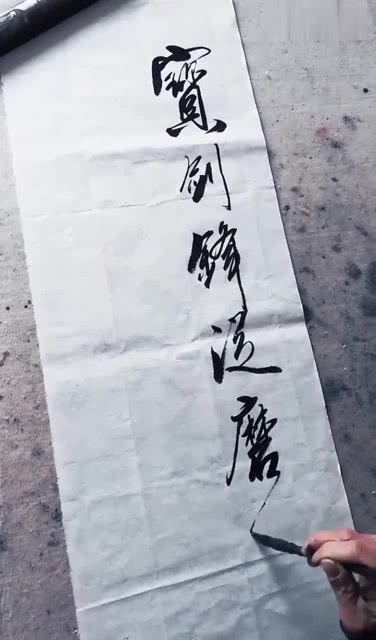 寶劍鋒從磨